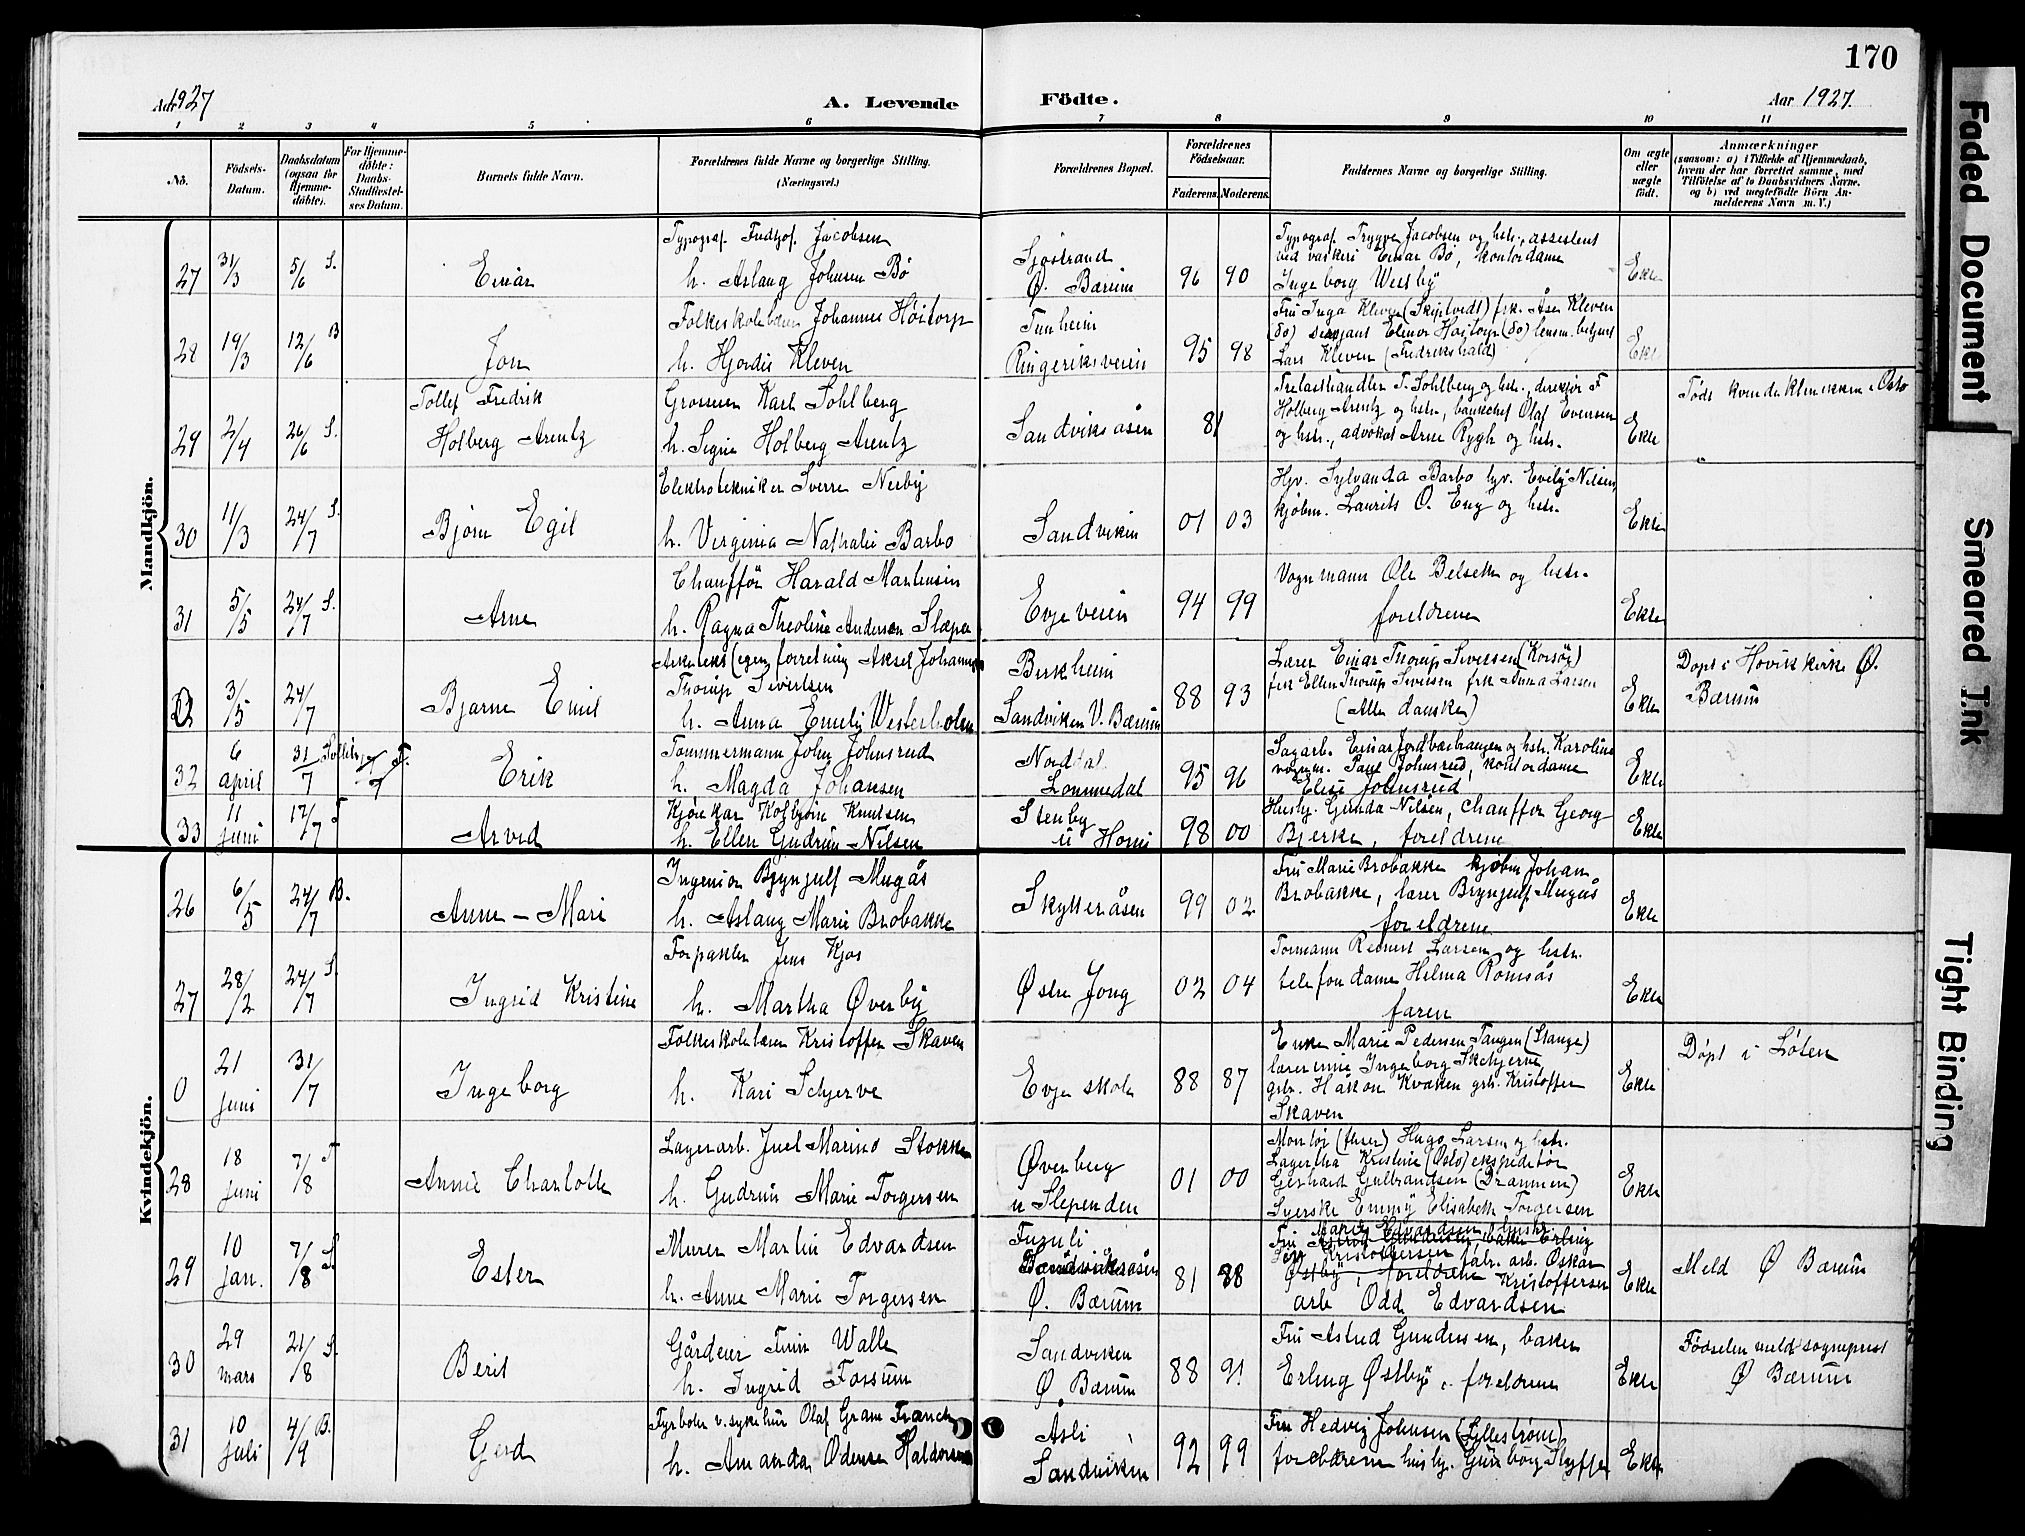 170
Aar 1927
A. Levende
Födte.
Aar 1927.
1 2 3 4 5 6 7 8 9 10 11
No.
Födsels-
Datum.
Daabsdatum
(ogsaa for
Hjemme-
döbte).
For Hjemme-
döbte:
Daabs-
Stadfæstel-
ses Datum.
Barnets fulde Navn.
Forældrenes fulde Navne og borgerlige Stilling.
(Næringsvei.)
Forældrenes Bopæl.
Forældrenes
Födselsaar.
Faderens. Moderens.
Faddernes Navne og borgerlige Stilling.
Om ægte
eller
uægte
födt.
Anmærkninger
(saasom: a) i Tilfælde af Hjemmedaab,
hvem der har forrettet samme, med
Tilföielse af to Daabsvidners Navne,
og b) ved uægtefödte Börn An-
melderens Navn m. V.)
Mandkjön.
27 31/3 5/6 S. Einar
Typograf. Fridtjof. Jacobsen
h. Aslaug Johnsen Bö
Sjöstrand
Ø. Bærum
96 90
Typograf. Trygve Jacobsen og hstr., assistent
ved vaskeri Einar Bö, kontordame
Ingeborg Westby
Ekte
28 19/3 12/6 B Jon
Folkeskolelærer Johannes Höitorp
h. Hjördis Kleven
Tunheim
Ringeriksveien
95 98
Fru Inga Kleven (Skiptvedt) frk. Åse Kleven
(do) sersjant Elinor Höitorp (do) lensm. betjent
Lars Kleven (Fredrikshald)
Ekte
29 2/4 26/6 S. Tollef Fredrik
Holberg Arentz
Grosserer Karl Sohlberg
h. Signe Holberg Arentz
Sandviksåsen
81
Trelasthandler T. Sohlberg og hstr., direktör F
Holberg Arentz og hstr., banksjef Olaf Evensen
og hstr., advokat Arne Rygh og hstr.
Ekte
Födt kvindeklinikken i Oslo
30 11/3 24/7 S. Bjørn Egil
Elektrotekniker Sverre Nerby
h. Virginia Nathalie Barbo
Sandviken
01 03
Hjv. Sylvanda Barbo hjv. Evely Nilsen,
kjøbm. Laurits O. Eng og hstr.
Ekte
31 5/5 24/7 S. Arne
Chauffør Harald Martinsen
h. Ragna Theoline Andersen Slæpa
Evjeveien
94 99
Vognmann Ole Belseth og hstr.
foreldrene
Ekte
0 3/5 24/7 Bjarne Emil
Arkitekt (egen forretning) Aksel Johannes
Thorup Sivertsen
h. Anna Emely Westerholm
Birkheim
Sandviken V. Bærum
88 93
Lærer Einar Thorup Sivertsen (Korsör)
frk Ellen Thorup Sivertsen frk Anna Larsen
(Alle danske)
Ekte
Döpt i Hövik kirke Ø.
Bærum
32 6 april 31/7 T. Erik
Tømmermann John Johnsrud
h. Magda Johansen
Nordtal
Lommedal
95 96
Sagarb. Einar Jordbærhaugen og hstr. Karoline
vognm. Paul Johnsrud, kontordame
Elise Johnsrud
Ekte
33 11 juni 17/7 T Arvid
Kjörekar Kolbjørn Knutsen
h. Ellen Gudrun Nilsen
Stenby
u Horni
98 00
Husby. Gunda Nilsen, chauffør Georg
Bjerke, foreldrene
Ekte
Kvindekjön.
26 6/5 24/7 B. Anne-Mari
Ingeniør Brynjulf Mugås
h. Aslaug Marie Brobakke
Skytteråsen
99 02
Fru Marie Brobakke kjöbm Johan
Brobakke, lærer Brynjulf Mugås
foreldrene
Ekte
27 28/2 24/7 S. Ingrid Kristine
Forpakter Jens Kjos
h. Martha Øverby
Østre Jong
02 04
Formann Reinert Larsen og hstr.
telefondame Helma Romsås
faren
Ekte
0 21 juni 31/7 Ingeborg
Folkeskolelærer Kristoffer Skaven
h. Kari Schjerve
Evje skole
88 87
Enke Marie Pedersen Tangen (Stange)
lærerinne Ingeborg Skchjerve
grb. Håkon Kvaken grb. Kristoffer
Skaven
Ekte
Döpt i Løten
28 18 juni 7/8 T Annie Charlotte
Lagerarb. Juel Marino Stokke
h. Gudrun Marie Torgersen
Øverberg
u Slependen
01 00
Montör (fører) Hugo Larsen og hstr.
Lagertha Kristine (Oslo) ekspeditör
Gerhard Gulbrandsen (Drammen)
Syerske Emmy Elisabeth Torgersen
Ekte
29 10 jan. 7/8 S. Ester
Murer Martin Edvardsen
h. Anne Marie Torgersen
Furuli
Sandviksåsen
Ø. Bærum
81 88
Marie Edvardsen, hustr.
Fru Astrid Gundersen, baker Erling
Kristoffersen fabr. arb. Oskar
Østby, foreldrene Kristoffersen
arb Odd Edvardsen
Ekte
Meld Ø Bærum
30 29 mars 21/8 S. Berit
Gårdeier Finn Walle
h. Ingrid Fossum
Sandviken
Ø. Bærum
88 91
Fru Astrid Gundersen, baker
Erling Østby, foreldrene
Ekte
Födselen meld sogneprest
Ø Bærum
31 10 juli 4/9 B. Gerd
Fyrböter v. sykehus Olaf Gram Franch
h. Amanda Odense Haldorsen
Asli
Sandviken
92 99
Fru Hedvig Johnsen (Lillestrøm)
foreldrene
Ekte
Faded Document
Smeared Ink
Tight Binding